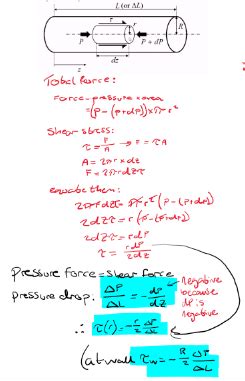 L (or ΔL)
τ
r
R
P
P + dP
dz
z
Total force:
Force = pressure × area
= (P - (P+dP)) × πr²
Shear stress:
τ = F/A → F = τA
A = 2πr × dz
F = 2πrdzτ
equate them:
2πrdzτ = πr² (P - (P+dP))
2dzτ = r (P - (P+dP))
2dzτ = rdP
τ = rdP/2dz
Pressure force = Shear force
pressure drop. ΔP/ΔL = - dP/dz
negative because dP is negative
∴ τ(r) = - r/2 ΔP/ΔL
(at wall τw = - R/2 ΔP/ΔL